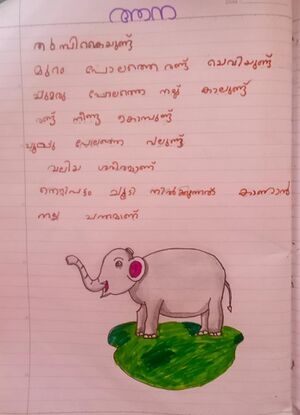 ആന
തുമ്പിക്കൈയുണ്ട്
മുറം പോലത്തെ രണ്ട് ചെവിയുണ്ട്
പോലത്തെ നാല് കാലുണ്ട്
രണ്ട് നീണ്ട കൊമ്പുണ്ട്
പോലത്തെ വാലുണ്ട്
വലിയ ശരീരമാണ്
നെറ്റിപട്ടം ചൂടി നിൽക്കുന്നത് കാണാൻ
നല്ല ചന്തമാണ്